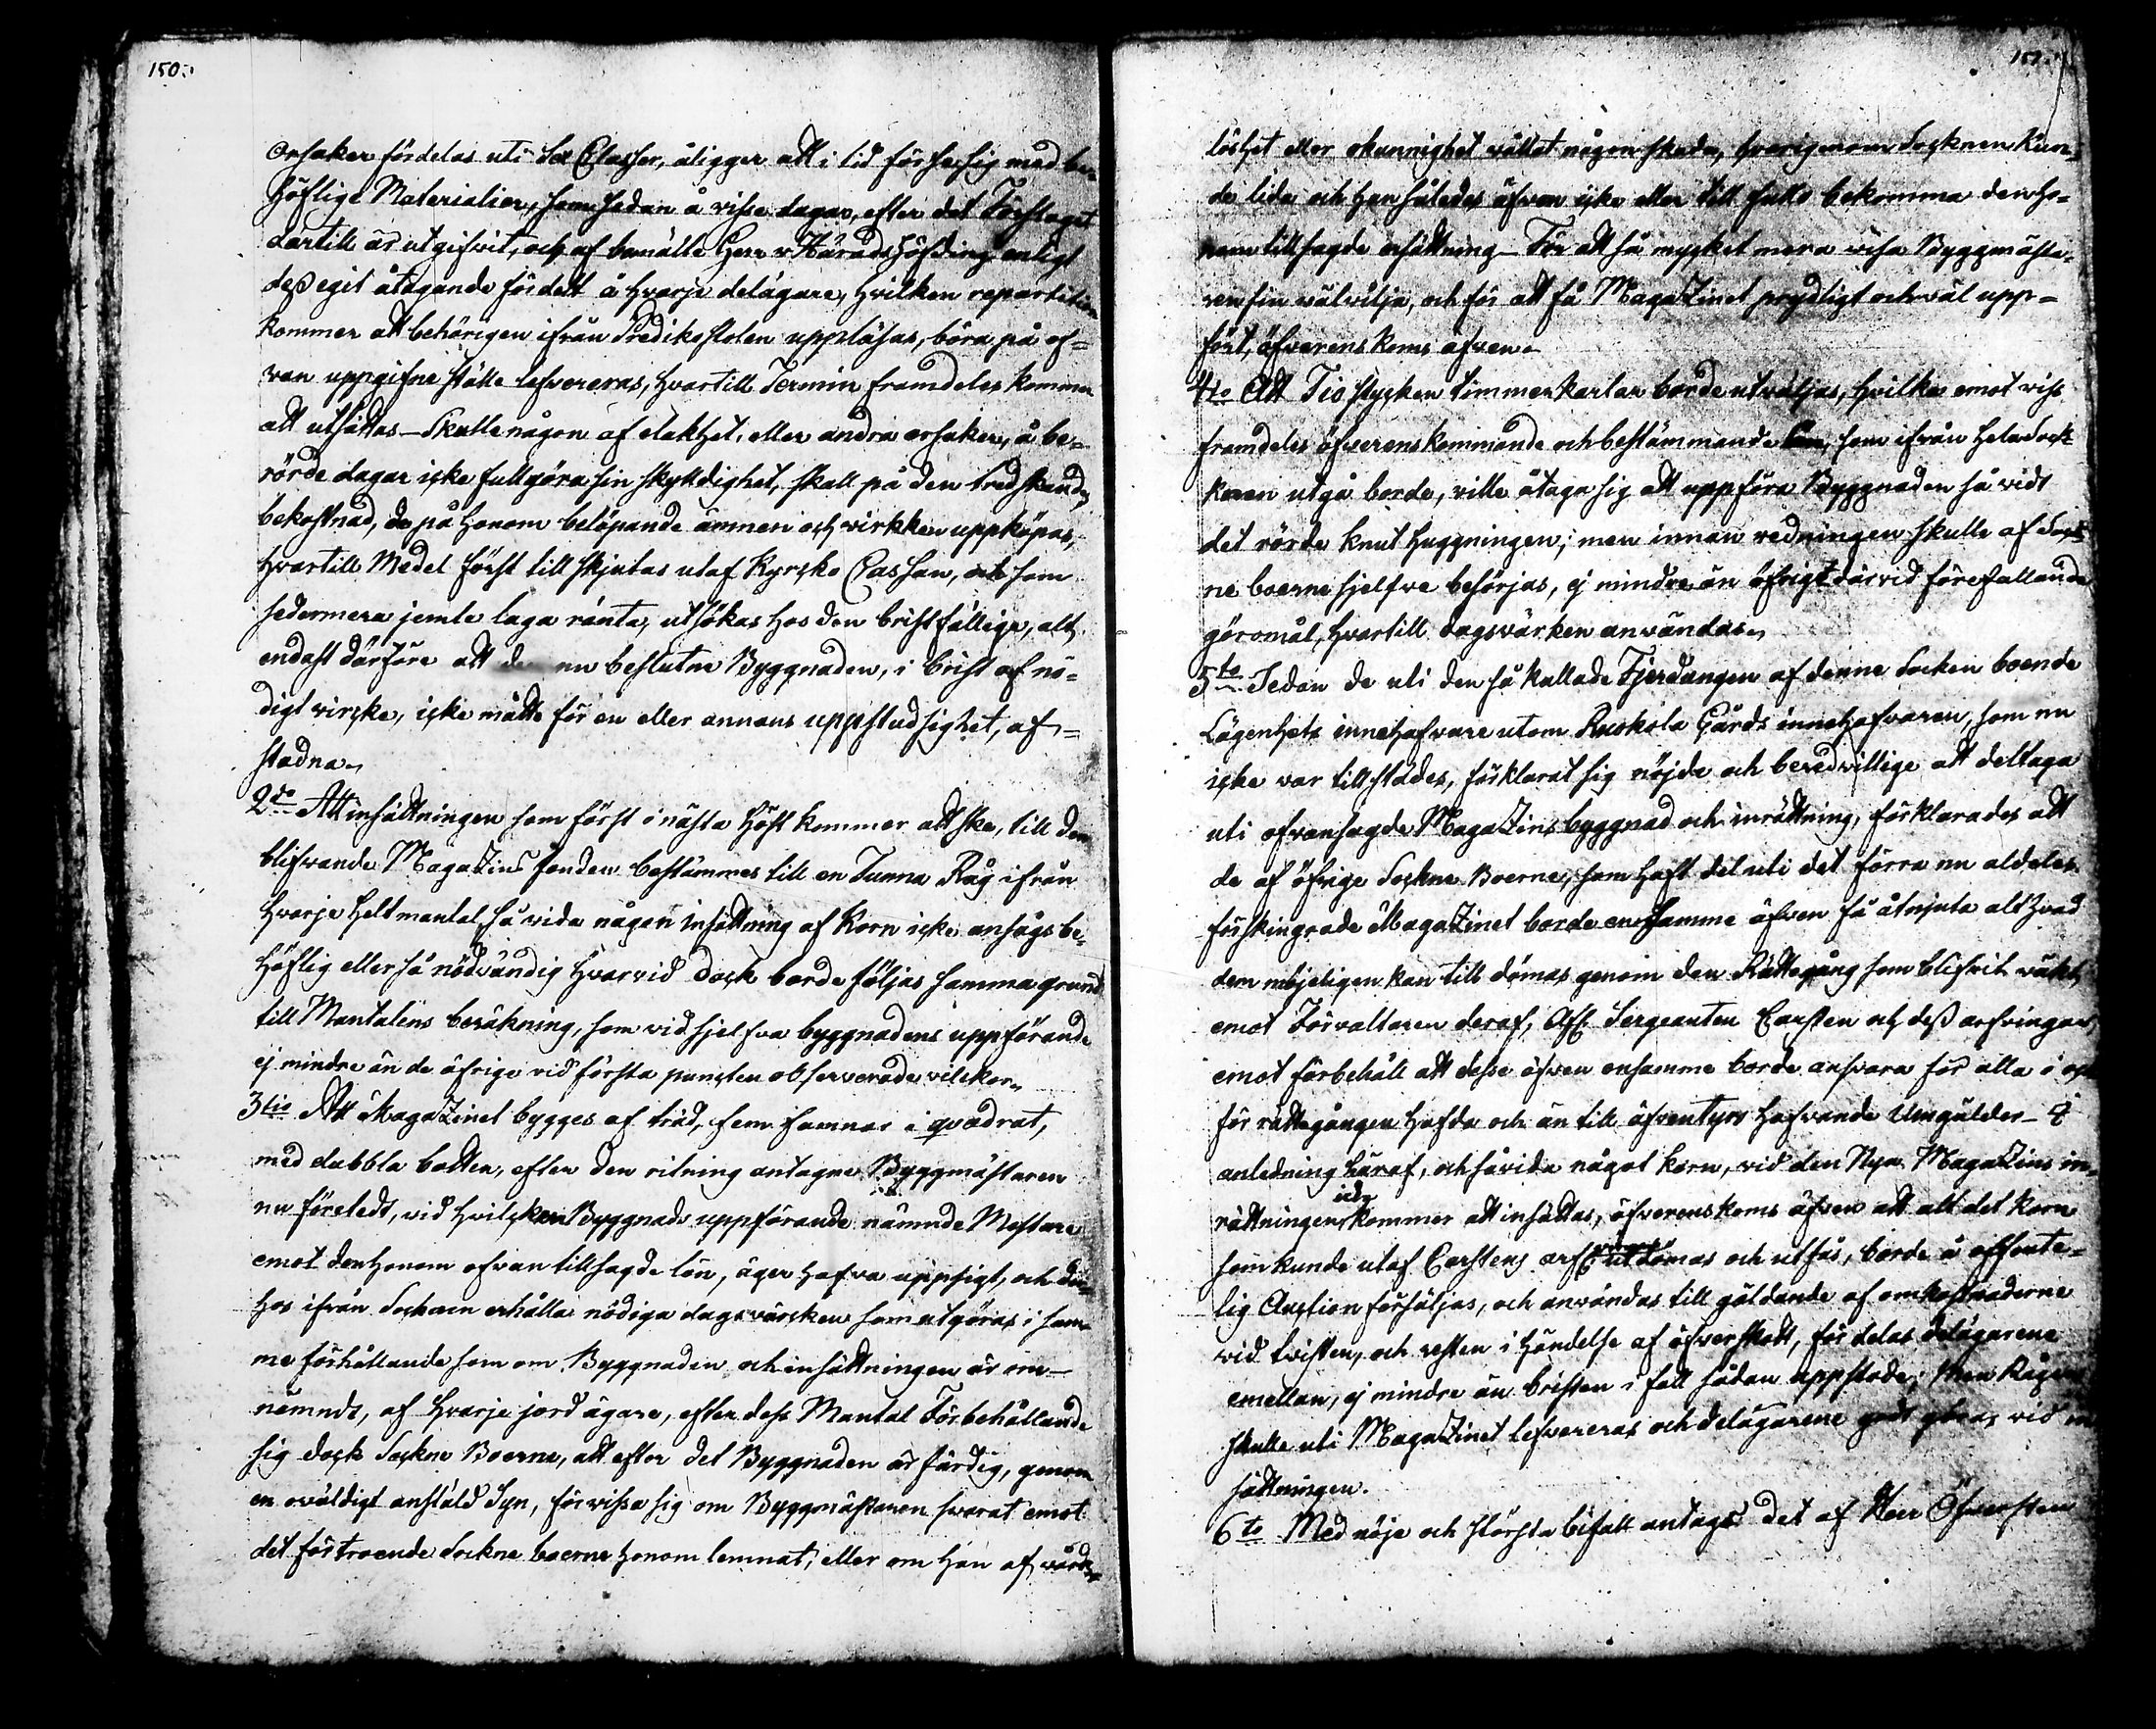 150.
orsaker fördelas uti Sex Classer, åligger att i tid förse sig med be-
höflige Materialier, som sedan å visse dagar, efter det Förslaget
dartill är utgifvit, och af bemälte Herr v Häradshöfding enligt
dess egit åtagande fördelt å hvarje delägare, hvilken repartition
kommer att behörigen ifrån Predikstolen uppläsas, böra på of-
van uppgifne ställe lefvereras, hvartill Termin framdeles kommer
att utsättas – Skulle någon af elakhet, eller andra orsaker, å be-
rörde dagar icke fullgöra sin skyldighet, skall på den tredskandes
bekostnad, de på honom belöpande ämnen och virkken uppköpas,
hvartill Medel först tillskjutas utaf Kyrcko Cassan, och som
sedermera jemte laga ränta, utsökas hos den bristfällige, alt
endast därföre att den nu beslutne Byggnaden, i brist af nö-
digt vircke, icke måtte för en eller annans uppstudsighet, af-
stadna.
2do Att insättningen som först i nästa höst kommer att ske, till den
blifvande Magazins fonden bestämmes till en Tunna Råg ifrån
hvarje helt mantal så vida någon insättning af Korn icke ansågs be-
höflig eller så nödvändig hvarvid dock borde följas samma grund
till Mantalens beräkning, som vid sjelfva byggnadens uppförande
ej mindre än de öfrige vid första puncten observerade vilckor.
3tio Att Magazinet bygges af träd, fem famnar i qvadrat,
med dubbla bottnar, efter den ritning antagne Byggmästaren
nu företedt, vid hvilcken Byggnads uppförande nämnde Mästare
emot den honom ofvan tillsagde lön, äger hafva uppsigt, och där-
hos ifrån Socknen erhålla nödiga dagsvärcken som utgöras i sam-
me förhållande som om Byggnaden och insättningen är om-
nämndt, af hvarje jord ägare, efter dess Mantal Förbehållande
sig dock Sockne Boerne, att efter det Byggnaden är färdig, genom
en oväldigt anstäld Syn, förvissa sig om Byggmästaren svarat emot
det förtroende Sockne boerne honom lemnat, eller om han af vårds-
151.
löshet eller okunnighet vållat någon skada, hvarigenom Socknen kun-
de lida och han således äfven icke eller till fullo bekomma den ho-
nom tillsagde ersättning – För att så mycket mera visa Byggmästa-
ren sin välvilja, och för att få Magazinet prydligt och väl upp-
fört, öfverenskoms äfven.
4to Att Tio stycken timmerkarlar borde utväljas, hvilka emot viss
framdeles öfverenskommande och bestämmande lön, som ifrån hela Sock-
knen utgå borde, ville åtaga sig att uppföra Byggnaden så vidt
det rörde knut huggningen; men innan redningen skulle af Sock-
ne boerne sjelfve besörjas, ej mindre än öfrigt därvid förefallande
göromål, hvartill dagsvärken användas.
5to Sedan de uti den så kallade Fjerdungen af denne Socken boende
Lägenhets innehafvare utom Ruskola Gårds innehafvaren, som nu
icke var tillstädes, förklarat sig nöjde och beredvillige att deltaga
uti ofvansagde Magazins byggnad och inrättning, förklarades att
de af öfrige Sockne Boerne, som haft del uti det förra nu aldeles
förskingrade Magazinet borde ensamme äfven få åtnjuta alt hvad
dem möjeligen kan till dömas genom den Rättegång som blifvit väkt
emot Förvaltaren deraf, Afl. Sergeanten Carsten och dess arfvingar
emot förbehåll att desse äfven ensamme borde ansvara för alla i och
för rättegången hafda och än till äfventyrs hafvande Umgälder – I
anledning häraf, och såvida något korn, vid den Nya Magazins in-
rättningen icke kommer att insättas, öfverenskoms äfven att alt det korn
som kunde utaf Carstens arf: utdömas och utfås, borde å offente-
lig Auction försäljas, och användas till gäldande af omkostnaderne
vid tvisten, och resten i händelse af öfverskott, fördelas delägarene
emellan, ej mindre än bristen i fall sådan uppstode; Men Rågen
skulle uti Magazinet lefvereras och delägarene godt göras vid in
sättningen.
6to Med nöje och största bifall antages det af Herr Öfversten